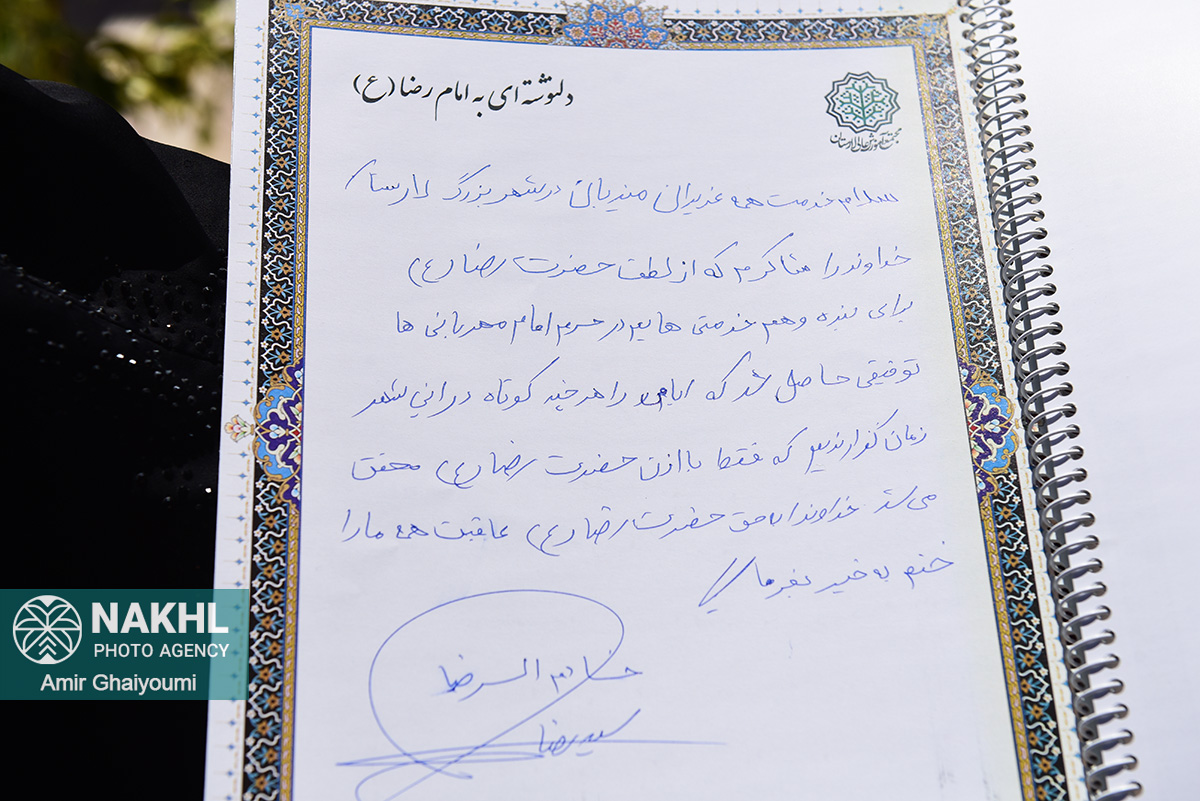 دلنوشته ای به امام رضا (ع)
مجتمع آموزش عالی لارستان
سلام خدمت همه عزیزان میزبان در شهر بزرگ لارستان
خداوند را شاکرم که از لطف حضرت رضا (ع)
برای بنده و هم خدمتی هایم در حرم امام مهربانی ها
توفیقی حاصل شد که ایامی را هر چند کوتاه در این شهر
زمان گذارندیم که فقط با اذن حضرت رضا (ع) محقق
می شد خداوندا بحق حضرت رضا (ع) عاقبت همه ما را
ختم به خیر بفرمای
خادم الرضا
سید رضا
NAKHL
PHOTO AGENCY
Amir Ghaiyoumi